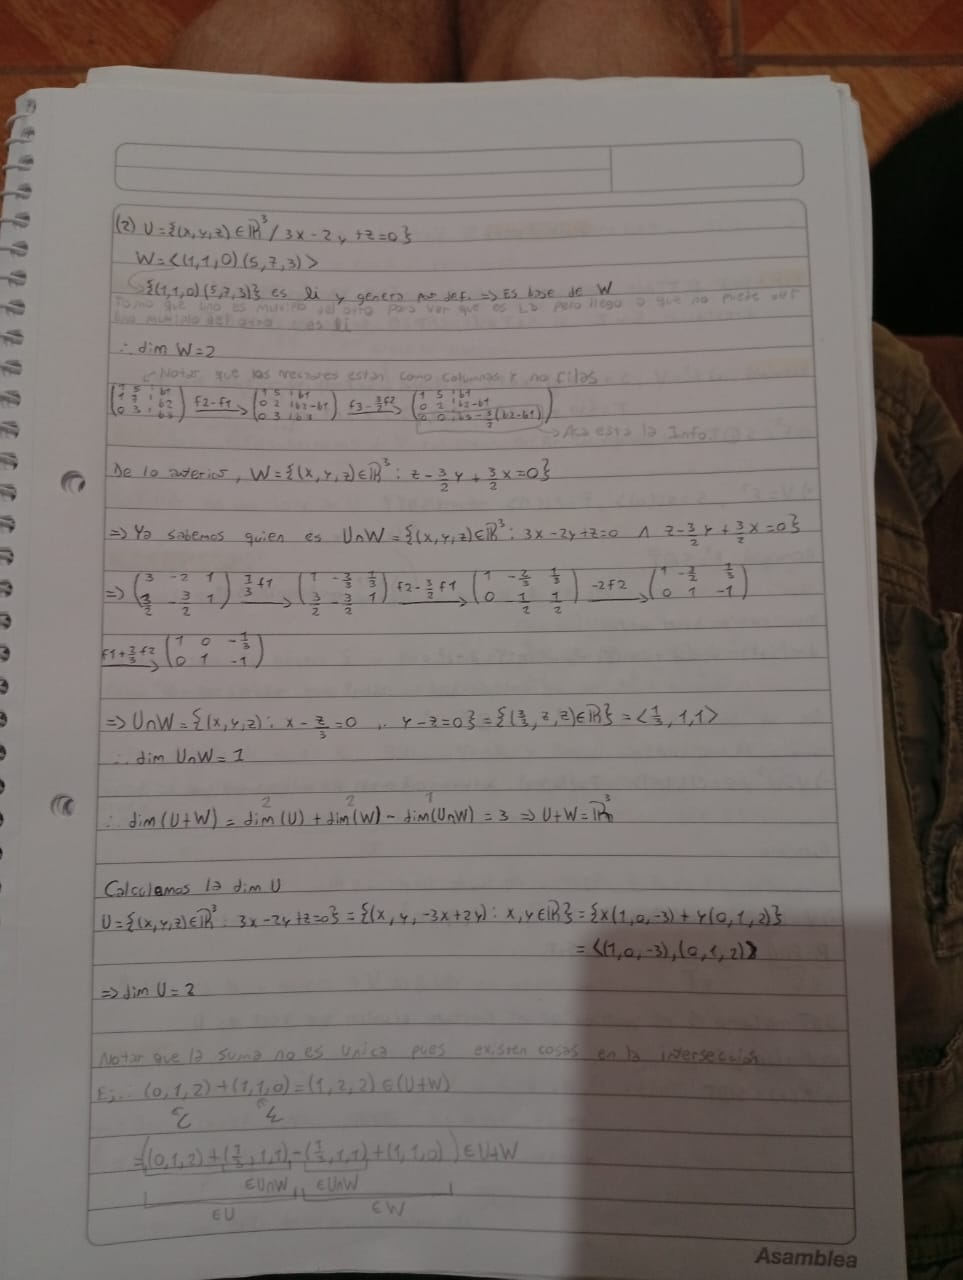 (2) U={(x,y,z)∈ℝ³/ 3x-2y+z=0}
W=<(1,1,0)(5,7,3)>
{(1,1,0)(5,7,3)} es li y genera por def. => Es base de W
Tomo que uno es multiplo del otro para ver que es LD pero llego a que no puede ser
uno multiplo del otro es li
∴ dim W=2
Notar que los vectores estan como columnas y no filas
(1 5 ¦ b1; 1 7 ¦ b2; 0 3 ¦ b3) f2-f1 → (1 5 ¦ b1; 0 2 ¦ b2-b1; 0 3 ¦ b3) f3-3/2f2 → (1 5 ¦ b1; 0 2 ¦ b2-b1; 0 0 ¦ b3-3/2(b2-b1))
→ Aca esta la Info.
De lo anterior, W={(x,y,z)∈ℝ³: z-3/2y+3/2x=0}
=> Ya sabemos quien es U∩W={(x,y,z)∈ℝ³: 3x-2y+z=0 ∧ z-3/2y+3/2x=0}
=> (3 -2 1; 3/2 -3/2 1) 1/3f1 → (1 -2/3 1/3; 3/2 -3/2 1) f2-3/2f1 → (1 -2/3 1/3; 0 1/2 1/2) -2f2 → (1 -2/3 1/3; 0 1 -1)
f1+2/3f2 → (1 0 -1/3; 0 1 -1)
=> U∩W={(x,y,z): x-z/3=0 y-z=0}={(z/3,z,z)∈ℝ}=<1/3,1,1>
∴ dim U∩W=1
2 2 1
∴ dim(U+W)=dim(U)+dim(W)-dim(U∩W)=3 => U+W=ℝ³
Calculemos la dim U
U={(x,y,z)∈ℝ³: 3x-2y+z=0}={(x,y,-3x+2y): x,y∈ℝ}={x(1,0,-3)+y(0,1,2)}
=<(1,0,-3),(0,1,2)>
=> dim U=2
Notar que la suma no es unica pues existen cosas en la intersección
Ej: (0,1,2)+(1,1,0)=(1,2,2)∈(U+W)
=((0,1,2)+(1/3,1,1)-(1/3,1,1)+(1,1,0))∈U+W
∈U∩W ∈U∩W
∈U ∈W
Asamblea